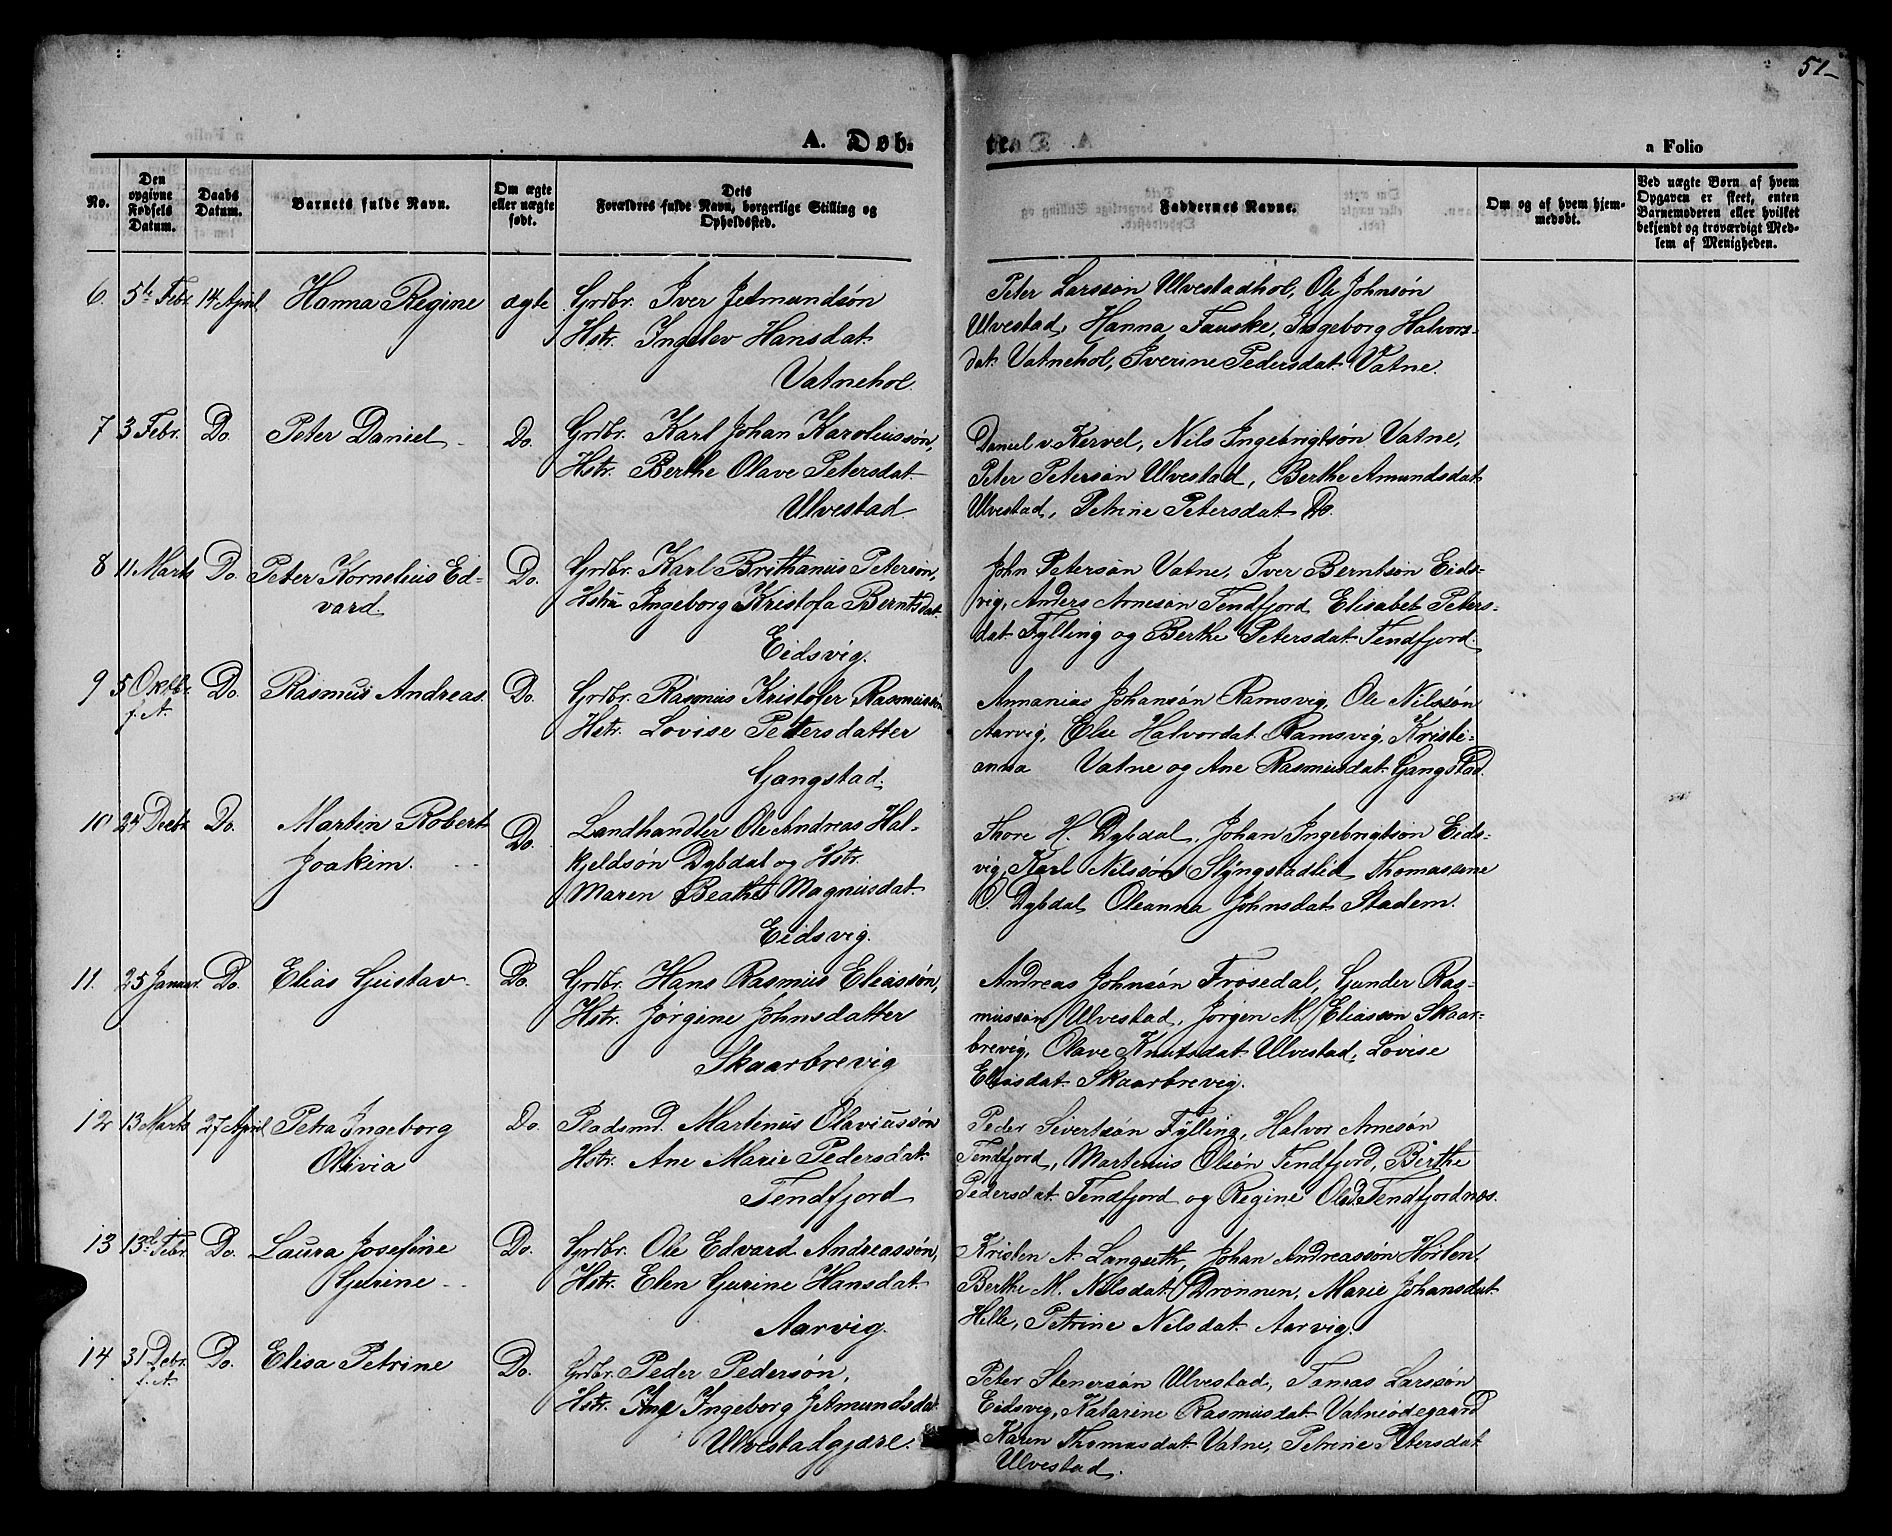 51-
A. Døb-
te.
a Folio
No.
Den opgivne Fødsels Datum.
Daabs Datum.
Barnets fulde Navn.
Om ægte eller uægte født.
Dets Forældres fulde Navn, borgerlige Stilling og Opholdssted.
Faddernes Navne.
Om og af hvem hjemmedøbt.
Ved uægte Børn af hvem Opgaven er skeet, enten Barnemoderen eller hvilket bekjendt og troværdigt Medlem af Menigheden.
6. 5te Febr 14 April Hanna Regine ægte Grdbr. Iver Jetmundsøn
Hstr. Ingelev Hansdat.
Vatnehol.
Peter Larssøn Ulvestadhol, Ole Johnsøn
Ulvestad, Hanna Fauske, Ingeborg Halvors-
dat. Vatnehol, Iverine Pedersdat. Vatne.
7 3 Febr. Do. Peter Daniel Do. Grdbr. Karl Johan Karoliussøn,
Hstr. Berthe Olave Petersdat.
Ulvestad.
Daniel v. Kervel, Nils Ingebrigtsøn Vatne,
Peter Petersøn Ulvestad, Berthe Amundsdat
Ulvestad, Petrine Petersdat. Do.
8 11 Marts Do. Peter Kornelius Ed-
vard. Do. Grdbr. Karl Brithanus Petersøn,
Hstru Ingeborg Kristofa Berntsdat.
Eidsvig.
John Petersøn Vatne, Iver Berntsøn Eids-
vig, Anders Arnesøn Tendfjord, Elisabet Peters-
dat. Fylling og Berthe Petersdat. Tendfjord.
9 5 Oktbr. f. A. Do. Rasmus Andreas. Do. Grdbr. Rasmus Kristofer Rasmussøn
Hstr. Lovise Petersdatter
Gangstad.
Annanias Johansøn Ramsvig, Ole Nilssøn
Aarvig, Else Halvordat. Ramsvig, Kristi-
anna Vatne og Ane Rasmusdat. Gangstad.
10 24 Decbr Do. Martin Robert
Joakim. Do. Landhandler Ole Andreas Hal-
kjeldsøn Dybdal og Hstr.
Maren Beathe Magnusdat.
Eidsvig.
Thore H. Dybdal, Johan Ingebrigtsøn Eids-
vig, Karl Nilssøn Slyngstadlid Thomassene
O. Dybdal, Oleanna Johnsdat. Stadem.
11. 25 Januar. Do. Elias Gustav. Do. Grdbr. Hans Rasmus Eliassøn,
Hstr. Jørgine Johnsdatter
Skaarbrevig
Andreas Johnsøn Frøsedal, Gunder Ras-
mussøn Ulvestad, Jørgen M. Eliassøn Skaar-
brevig, Olave Knutsdat. Ulvestad, Lovise
Eliasdat. Skaarbrevig.
12 13 Marts 27 April Petra Ingeborg
Olivia Do. Pladsmd. Martinus Olaviussøn
Hstr. Ane Marie Pedersdat.
Tendfjord
Peder Sivertsøn Fylling, Halvor Arnesøn
Tendfjord, Martinus Olsøn Tendfjord, Birthe
Pedersdat. Tendfjord og Regine Olsd. Tendfjordnæs.
13 13de Febr. Do. Laura Josefine
Gurine Do. Grdbr. Ole Edvard Andreassøn,
Hstr. Elen Gurine Hansdat.
Aarvig.
Kristen A. Langseth, Johan Andreassøn Horten.
Berthe M. Nilsdat. Drønnen, Marie Johansdat.
Helle, Petrine Nilsdat. Aarvig.
14. 31 Debr. f. A. Do. Elisa Petrine Do. Grdbr. Peder Pedersøn,
Hstr. Ane Ingeborg Jetmundsdat.
Ulvestadgjære.
Peter Stenersøn Ulvestad, Tomas Larssøn
Eidsvig, Katarine Rasmusdat. Vatneødegaard
Karen Thomasdat. Vatne, Petrine Petersdat.
Ulvestad.